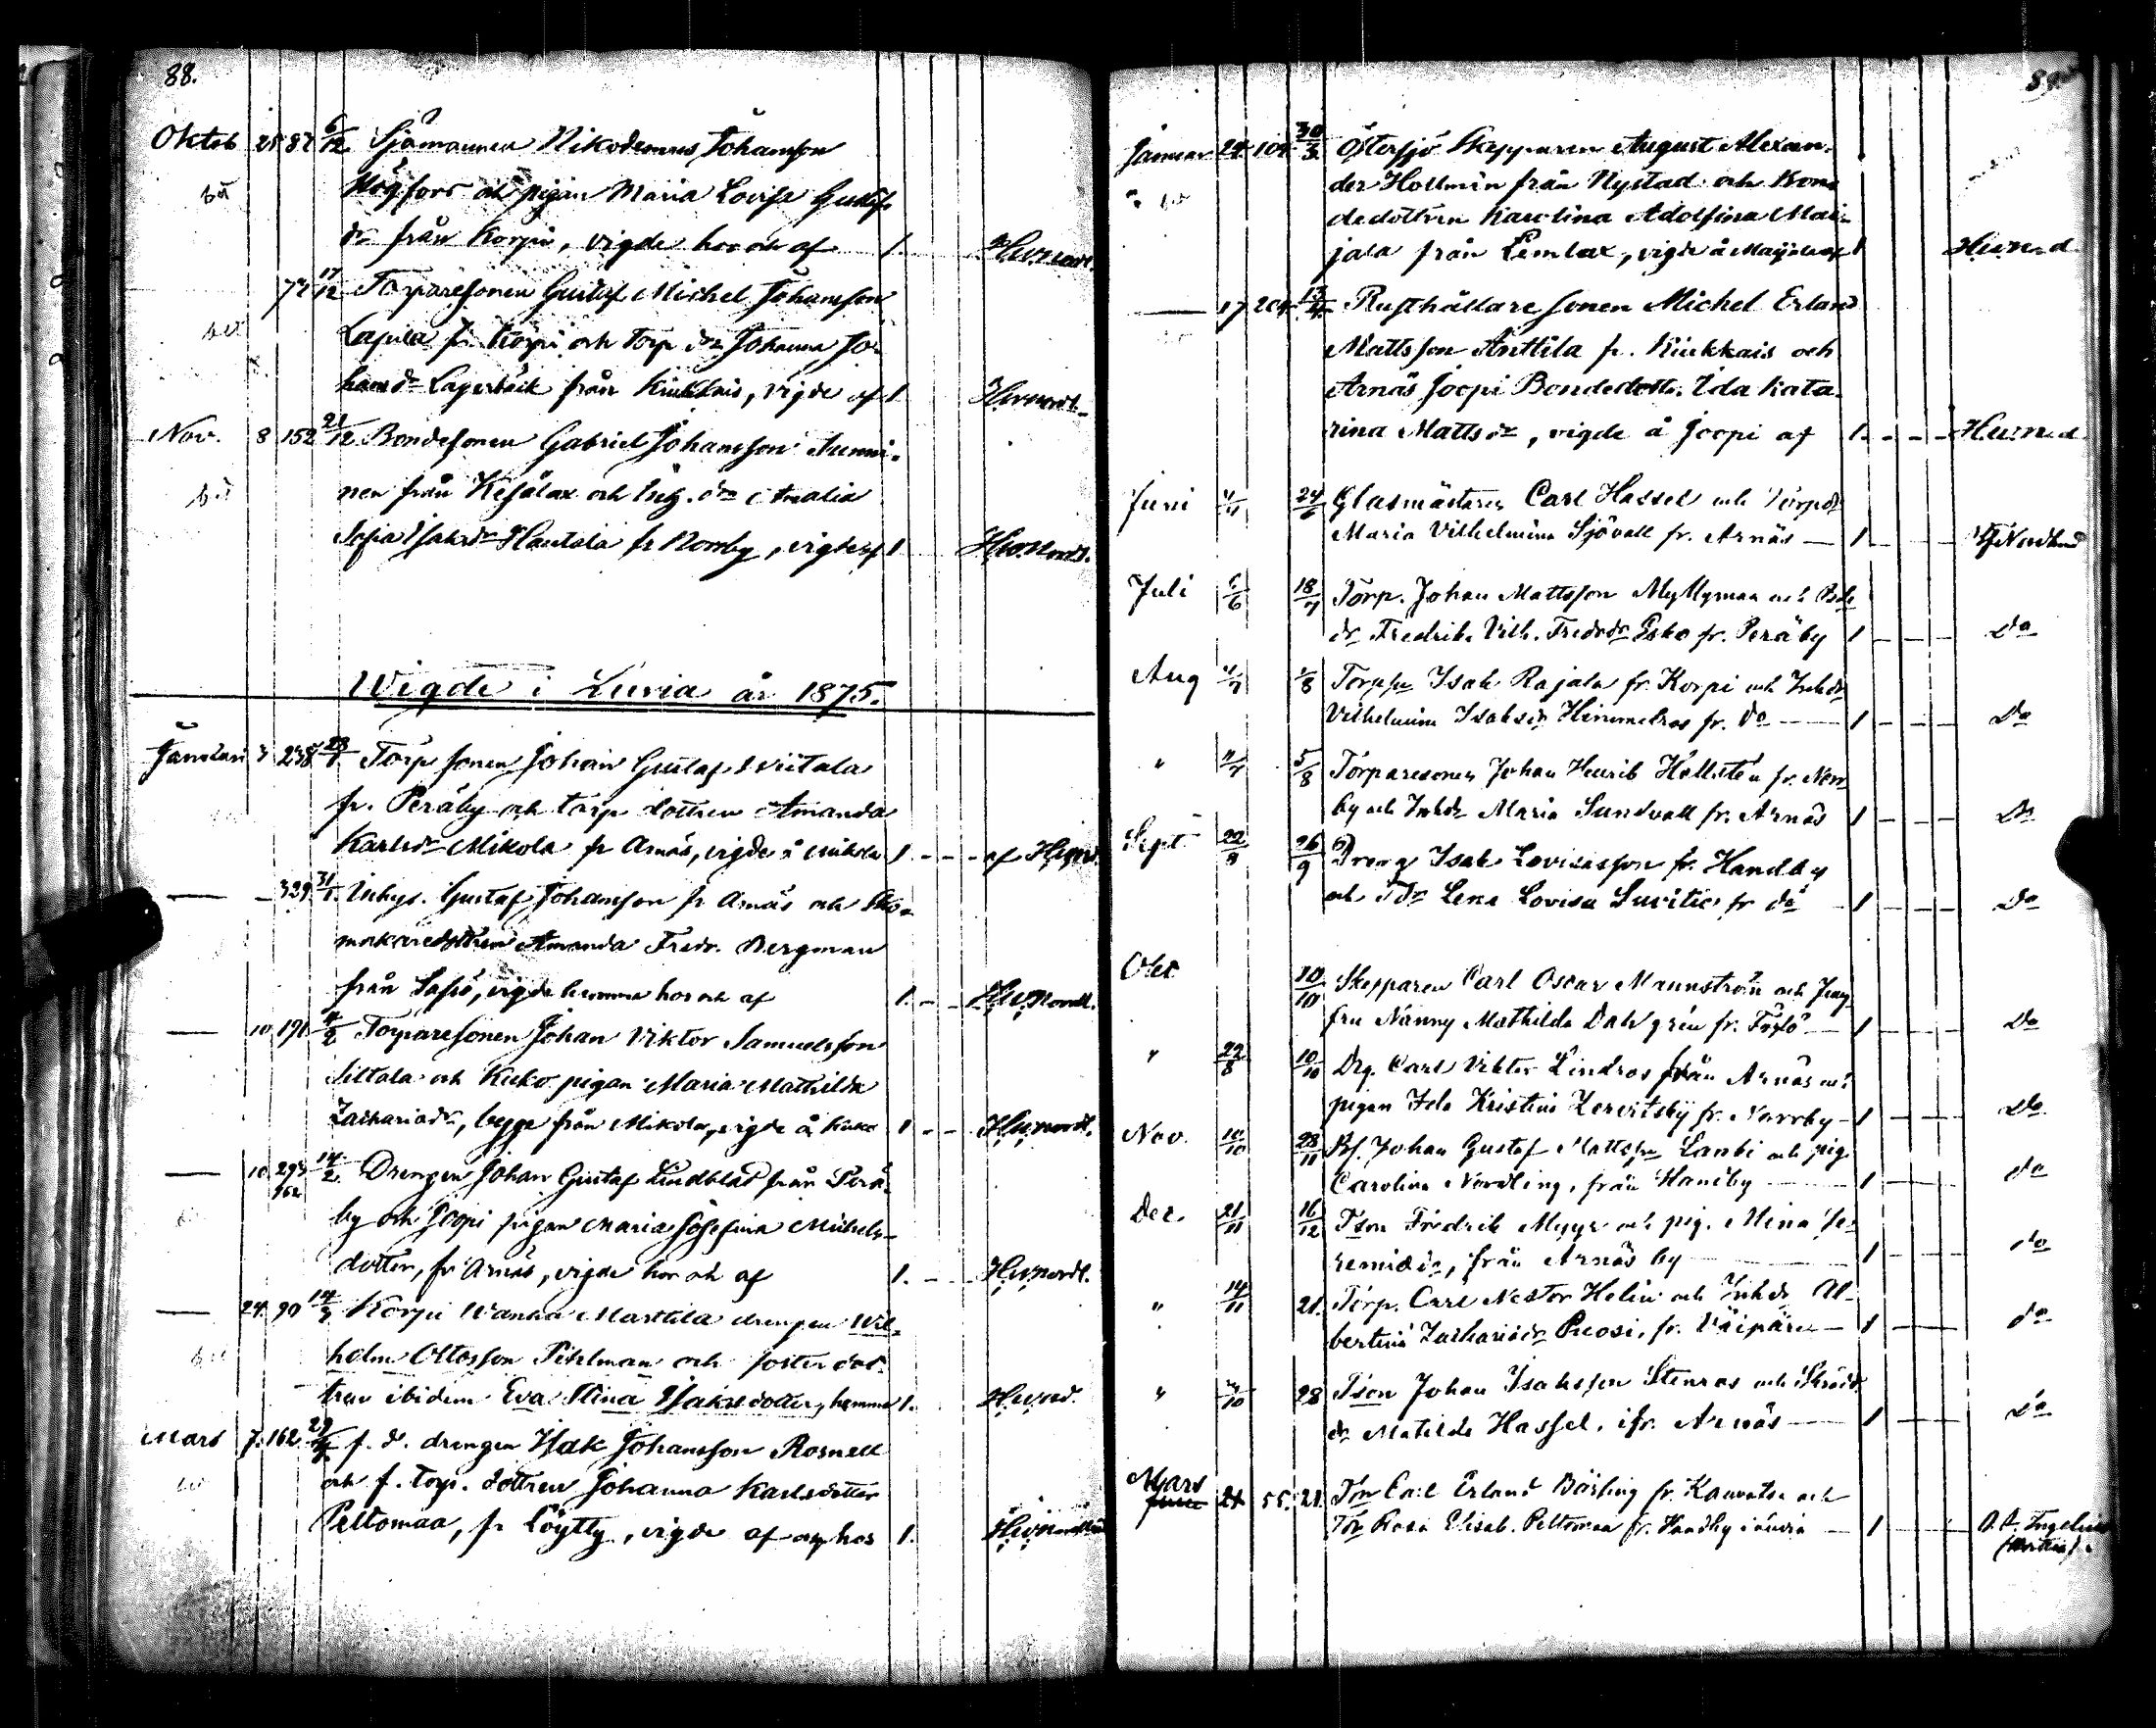 88.
Oktob 25 87 6/12 Sjömannen Nikodemus Johansson
Högfors och pigan Maria Lovisa Gustafs
dr från Korpi, vigde hos och af 1.
72 17/12 Torparesonen Gustaf Michel Johansson
fr. Korpi och Torp. dn Johanna Jo-
hansdr Lagerbäck från Kiukkais, vigde af 1
Nov. 8 152 21/12 Bondesonen Gabriel Johansson Nummi-
nen från Kesälax och Inh. dn Amalia
Sofia Isaksdr Hautala fr Norrby, vigde af 1
Wigde i Luvia år 1875.
Januari 3 238 23/1 Torp sonen Johan Gustaf Wiitala
fr. Peräby och torp dottren Amanda
Karlsdr Mikola fr Arnäs, vigde å Mikola 1. af
329 31/1 Inhys. Gustaf Johansson fr Arnäs och Sko-
makaredottren Amanda Fredr. Bergman
från Lapö, vigde hemma hos och af 1.
10 191 11/2 Torparesonen Johan Viktor Samuelsson
Siltala och Kuko pigan Maria Mathilda
Zachariadr, begge från Mikola, vigde å Kuko 1
10 293 162 14/2 Drengen Johan Gustaf Lindblad från Perä-
by och Joopi pigan Maria Josefina Michels-
dotter, fr Arnäs, vigde hos och af 1.
24 90 14/3 Korpi Wanha Marttila drengen Wil-
helm Ottosson Pihlman och fosterdot-
tren ibidem Eva Stina Isaksdotter, hemma 1.
Mars 7. 162 f. d. drengen Isak Johansson Rosnell
och f. torp. dottren Johanna Karlsdotter
Peltomaa, fr Löytty, vigde af och hos 1.
89.
Januar 24 104 30/3 Östersjö Skepparen August Alexan-
der Hollmén från Nystad och Bon-
dedottren Karolina Adolfina Mai-
jala från Lemlax, vigde å Maijala af 1
17 204 13/4 Rusthållare sonen Michel Erland
Mattsson Anttila fr. Kiukkais och
Arnäs Joopi Bondedott. Ida Kata-
rina Mattsdr, vigde å Joopi af 1.
Juni 24/6 Glasmästaren Carl Hassel och Torpdr
Maria Vilhelmina Sjövall fr. Arnäs 1
Juli 18/7 Torp. Johan Mattsson Myllymaa och Bde
dr Fredrika Vilh. Fredrdr Esko fr. Peräby 1 do
Aug 1/8 Torpsn Isak Rajala fr. Korpi och Inhdr
Vilhelmina Isaksdr Himmelros fr. do 1 do
" 5/8 Torparesonen Johan Henrik Hellstén fr. Norr-
by och Inhdr Maria Sundvall fr. Arnäs 1 do
Sept 22/8 26/9 Dreng Isak Lovisasson fr. Handby
och Tdr Lena Lovisa fr do 1 do
Okt 10/10 Skepparen Carl Oscar Mannström och Jung-
fru Nanny Mathilda Dahlgrén fr. 1 do
" 22/8 10/10 Drg. Carl Viktor Lindros från Arnäs och
pigan Ida Kristina fr. Norrby 1 do
Nov. 10/10 28/11 Bs. Johan Gustaf Mattsson Lanki och pig.
Carolina Nordling, från Handby 1 do
Dec. 21/11 16/12 Tson Fredrik Myyr och pig. Mina Je-
remiadr, från Arnäs by 1 do
" 14/11 21. Torp. Carl Nestor Helin och Inhdr Al-
bertina Zachariadr, fr. Väipäre 1 do
" 28 Tson Johan Isaksson Stenros och Skrädd.
dr Matilda Hassel, ifr. Arnäs 1 do
Mars 21 55. 21. Tsn Carl Erland Bärling fr. Kauvatsa och
Tdr Rosa Elisab. Peltomaa fr. Handby i Luvia 1